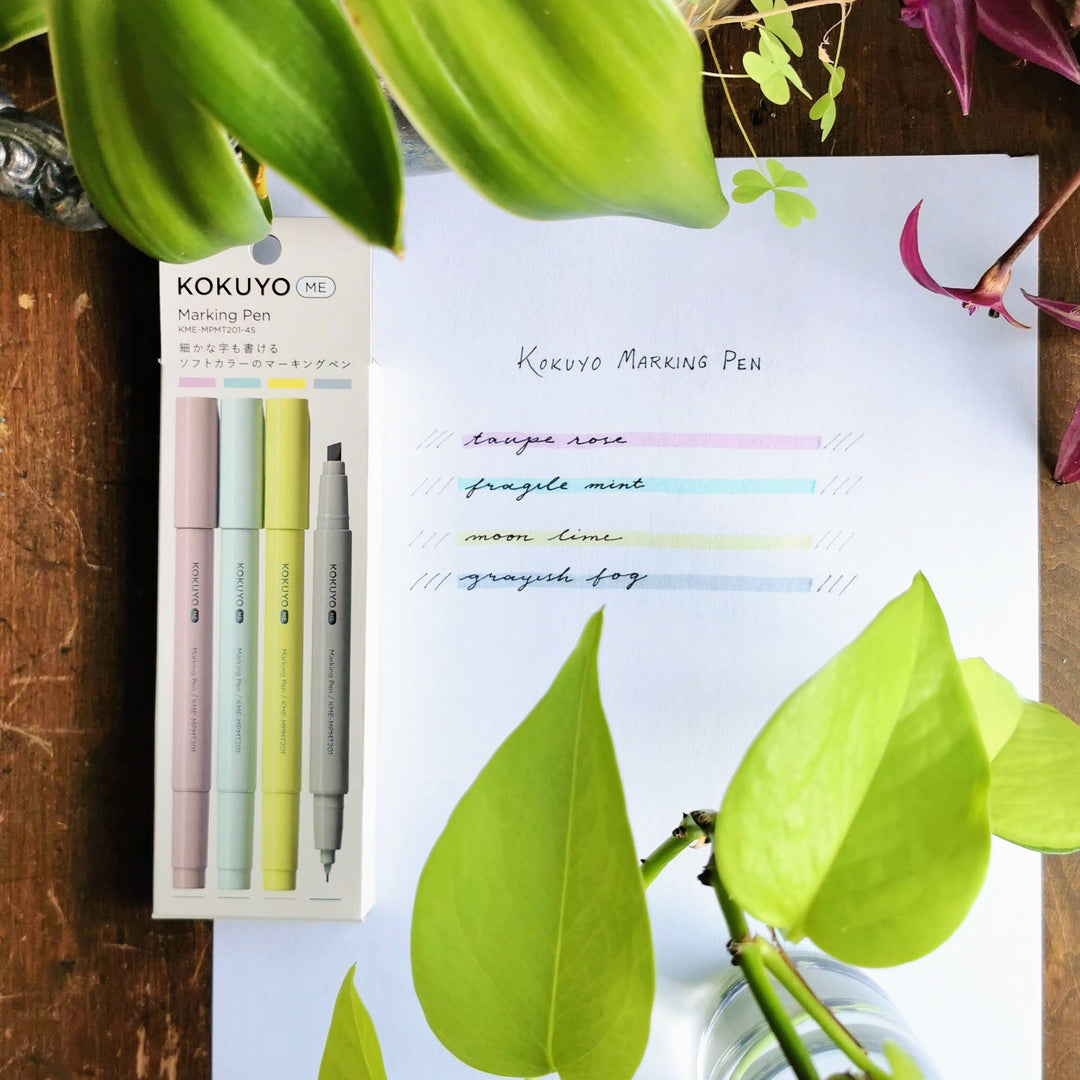 KOKUYO ME
Marking Pen
KME-MPMT201-4S
細かな字も書ける
ソフトカラーのマーキングペン
KOKUYO ME Marking Pen / KME-MPMT201
KOKUYO ME Marking Pen / KME-MPMT201
KOKUYO ME Marking Pen / KME-MPMT201
KOKUYO ME Marking Pen / KME-MPMT201
KOKUYO MARKING PEN
/// taupe rose ///
/// fragile mint ///
/// moon lime ///
/// grayish fog ///